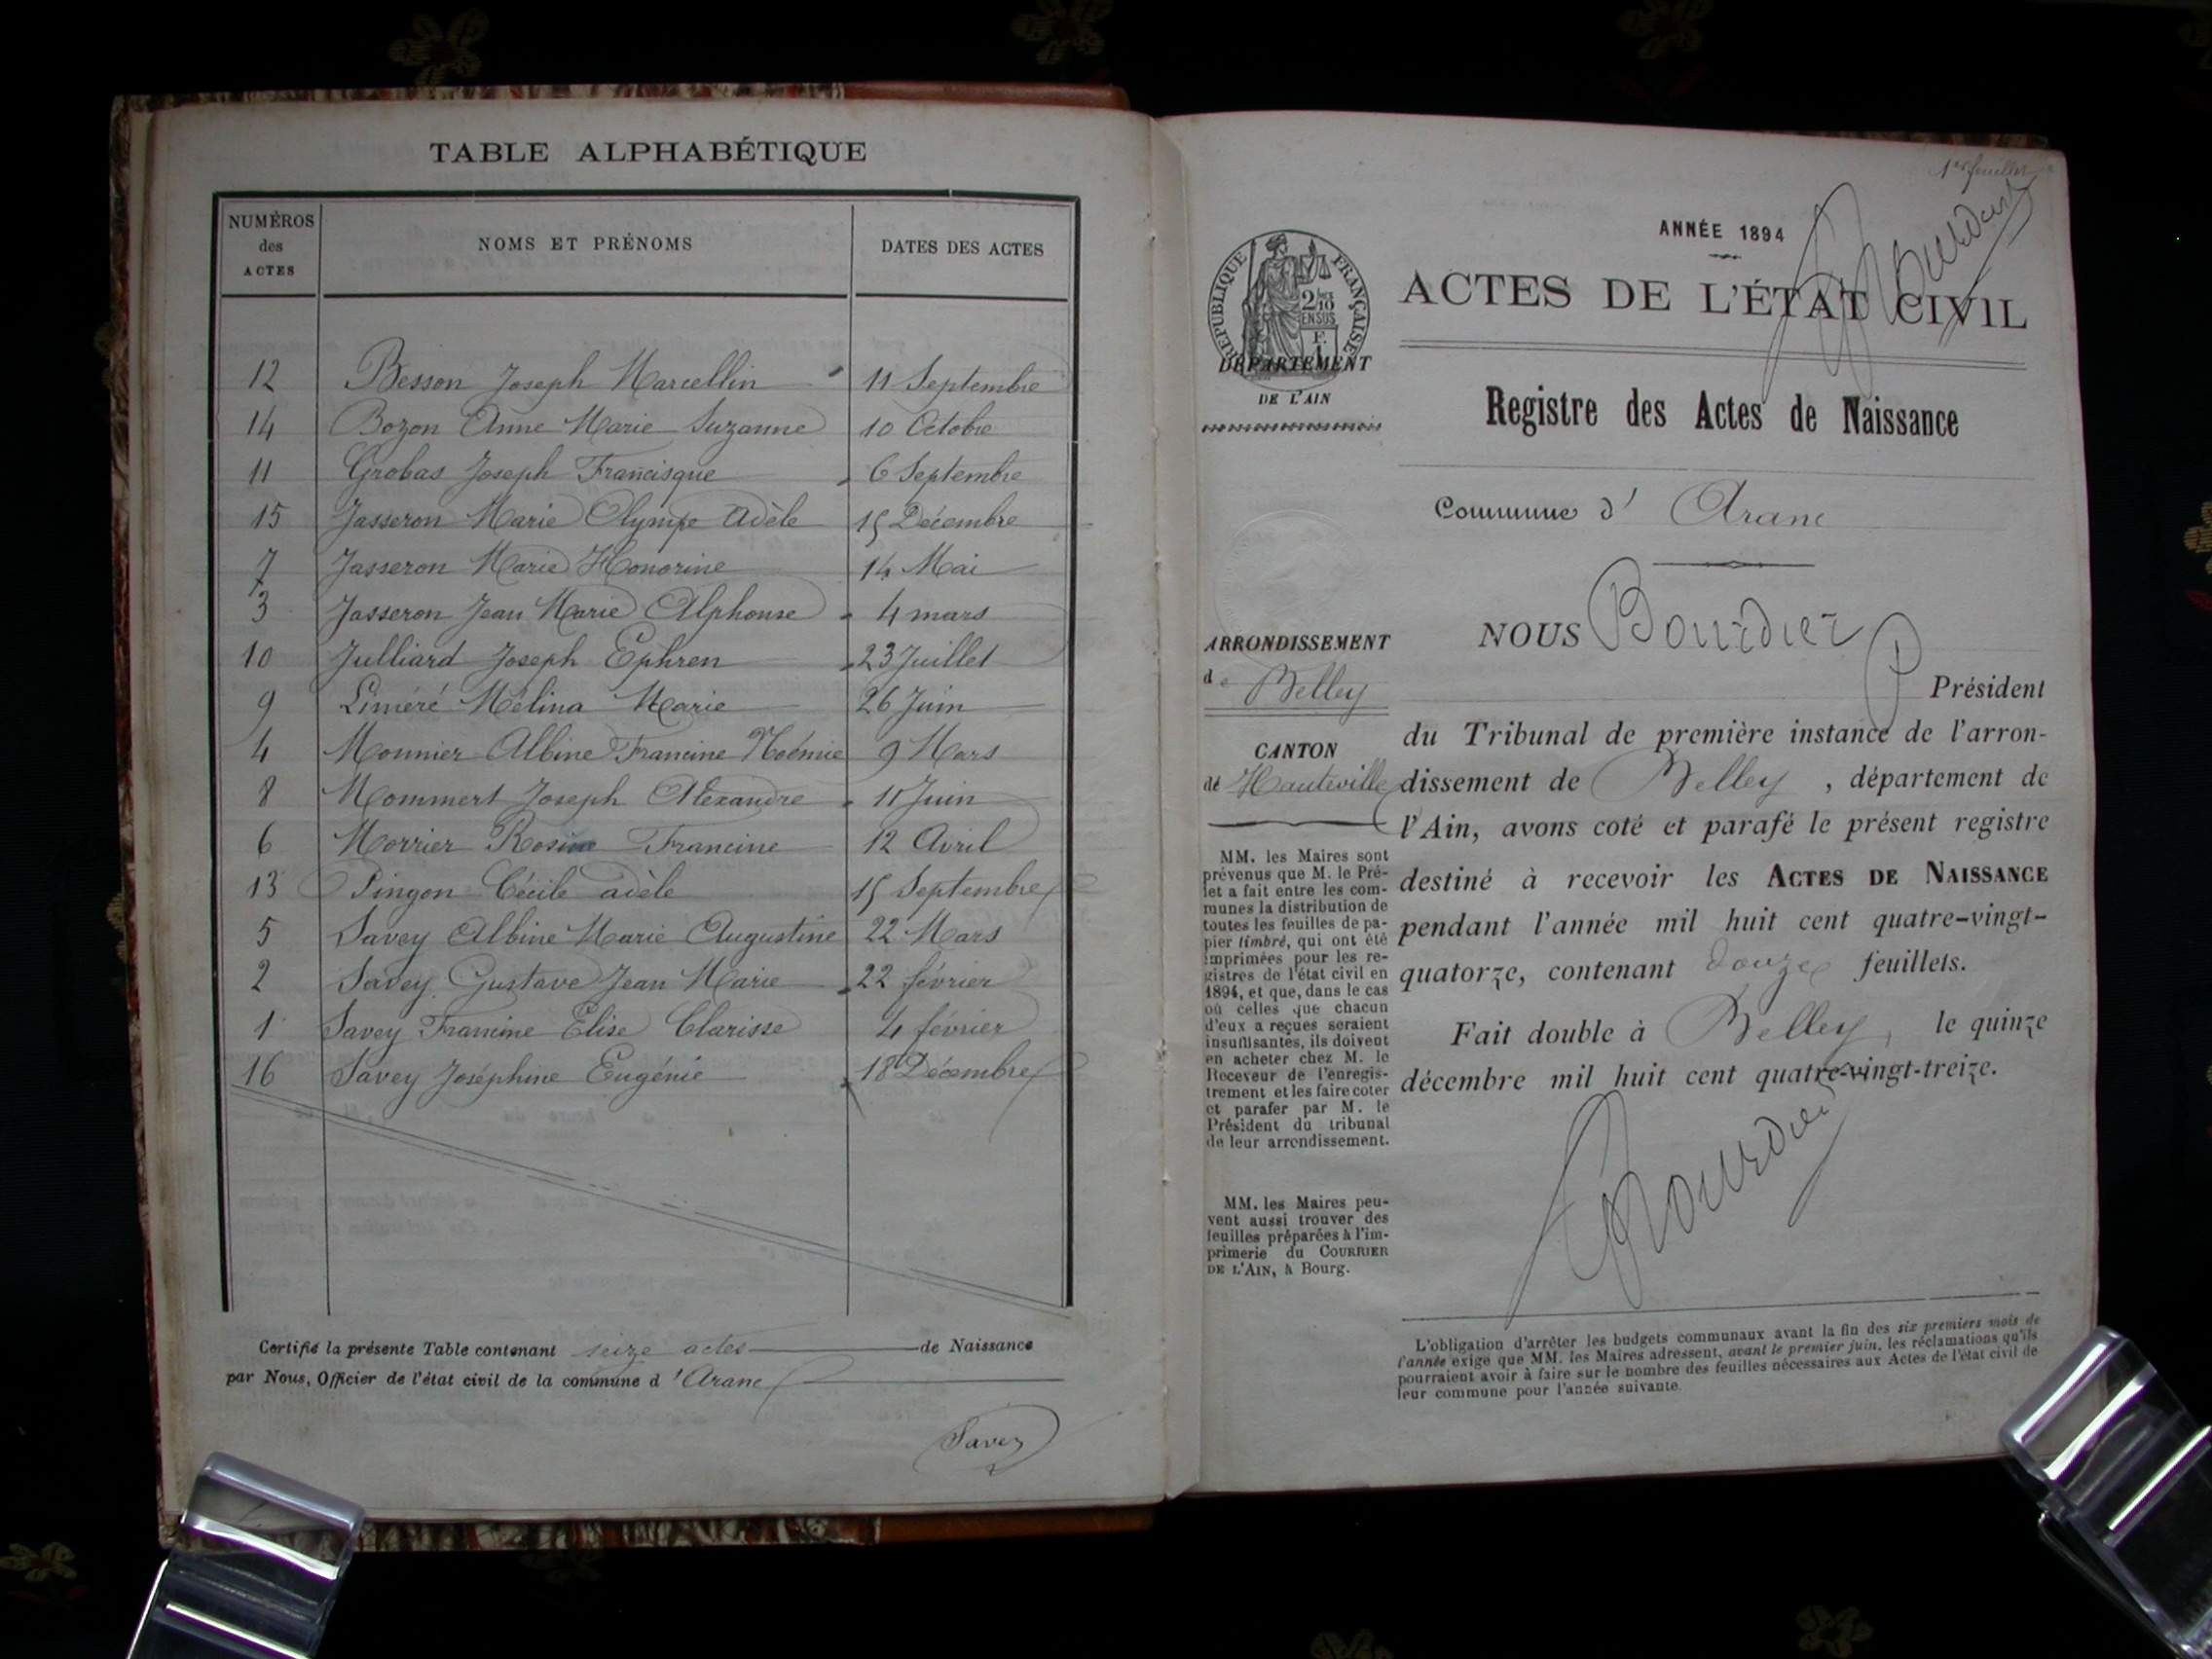 TABLE ALPHABÉTIQUE
NUMÉROS des ACTES NOMS ET PRÉNOMS DATES DES ACTES
12 Besson Joseph Marcellin 11 Septembre
14 Bozon Anne Marie Suzanne 10 Octobre
11 Grobas Joseph Francisque 6 Septembre
15 Jasseron Marie Olympe Adèle 15 Décembre
7 Jasseron Marie Honorine 14 Mai
3 Jasseron Jean Marie Alphonse 4 mars
10 Julliard Joseph Ephren 23 Juillet
9 Liméré Mélina Marie 26 Juin
4 Monnier Albine Francine Noémie 9 Mars
8 Mommert Joseph Alexandre 11 Juin
6 Morrier Rosine Francine 12 Avril
13 Pingon Cécile adèle 15 Septembre
5 Savey Albine Marie Augustine 22 Mars
2 Savey Gustave Jean Marie 22 février
1 Savey Francine Élise Clarisse 4 février
16 Savey Joséphine Eugénie 18 Décembre
Certifié la présente Table contenant seize actes de Naissance
par Nous, Officier de l'état civil de la commune d 'Aranc
Savey
1er feuillet
Bourdier
ANNÉE 1894
ACTES DE L'ÉTAT CIVIL
RÉPUBLIQUE FRANÇAISE
2/10
EN SUS
DÉPARTEMENT
DE L'AIN
Registre des Actes de Naissance
Commune d' Aranc
ARRONDISSEMENT
de Belley
CANTON
de Hauteville
MM. les Maires sont
prévenus que M. le Pré-
fet a fait entre les com-
munes la distribution de
toutes les feuilles de pa-
pier timbré, qui ont été
imprimées pour les re-
gistres de l'état civil en
1894, et que, dans le cas
où celles que chacun
d'eux a reçues seraient
insuffisantes, ils doivent
en acheter chez M. le
Receveur de l'enregis-
trement et les faire coter
et parafer par M. le
Président du tribunal
de leur arrondissement.
MM. les Maires peu-
vent aussi trouver des
feuilles préparées à l'im-
primerie du COURRIER
DE L'AIN, à Bourg.
NOUS Bourdier
Président
du Tribunal de première instance de l'arron-
dissement de Belley , département de
l'Ain, avons coté et parafé le présent registre
destiné à recevoir les ACTES DE NAISSANCE
pendant l'année mil huit cent quatre-vingt-
quatorze, contenant douze feuillets.
Fait double à Belley, le quinze
décembre mil huit cent quatre-vingt-treize.
Bourdier
L'obligation d'arrêter les budgets communaux avant la fin des six premiers mois de
l'année exige que MM. les Maires adressent, avant le premier juin, les réclamations qu'ils
pourraient avoir à faire sur le nombre des feuilles nécessaires aux Actes de l'état civil de
leur commune pour l'année suivante.